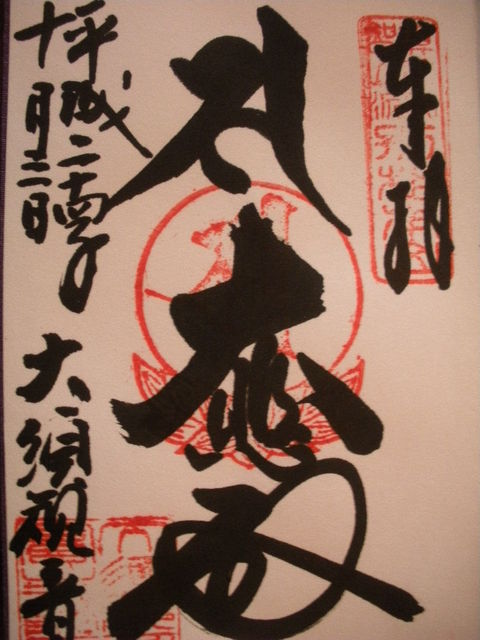 奉拝
大悲殿
平成二十四年
十月三日
大須観音